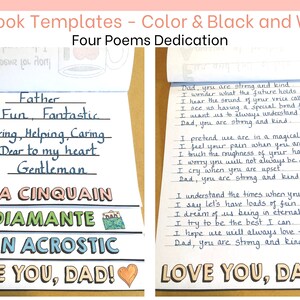 ook Templates - Color & Black and W
Four Poems Dedication
Father
Fun, Fantastic
ring, Helping, Caring
Dear to my heart
Gentleman
A CINQUAIN
DIAMANTE
N ACROSTIC
E YOU, DAD!
Dad, you are strong and kind
I wonder what the future holds
I hear the sound of your voice
I see us having a special bond
I want us to always understand
Dad, you are strong and kind
I pretend we are in a magical
I feel your pain when you are
I touch the roughness of your
I worry you will not always be
I cry when you are upset
Dad, you are strong and kind
I understand the times when you
I say let's have loads of fun
I dream of us being in eternal
I try to be the best I can
I hope we will always love
Dad, you are strong and kind
LOVE YOU, DA